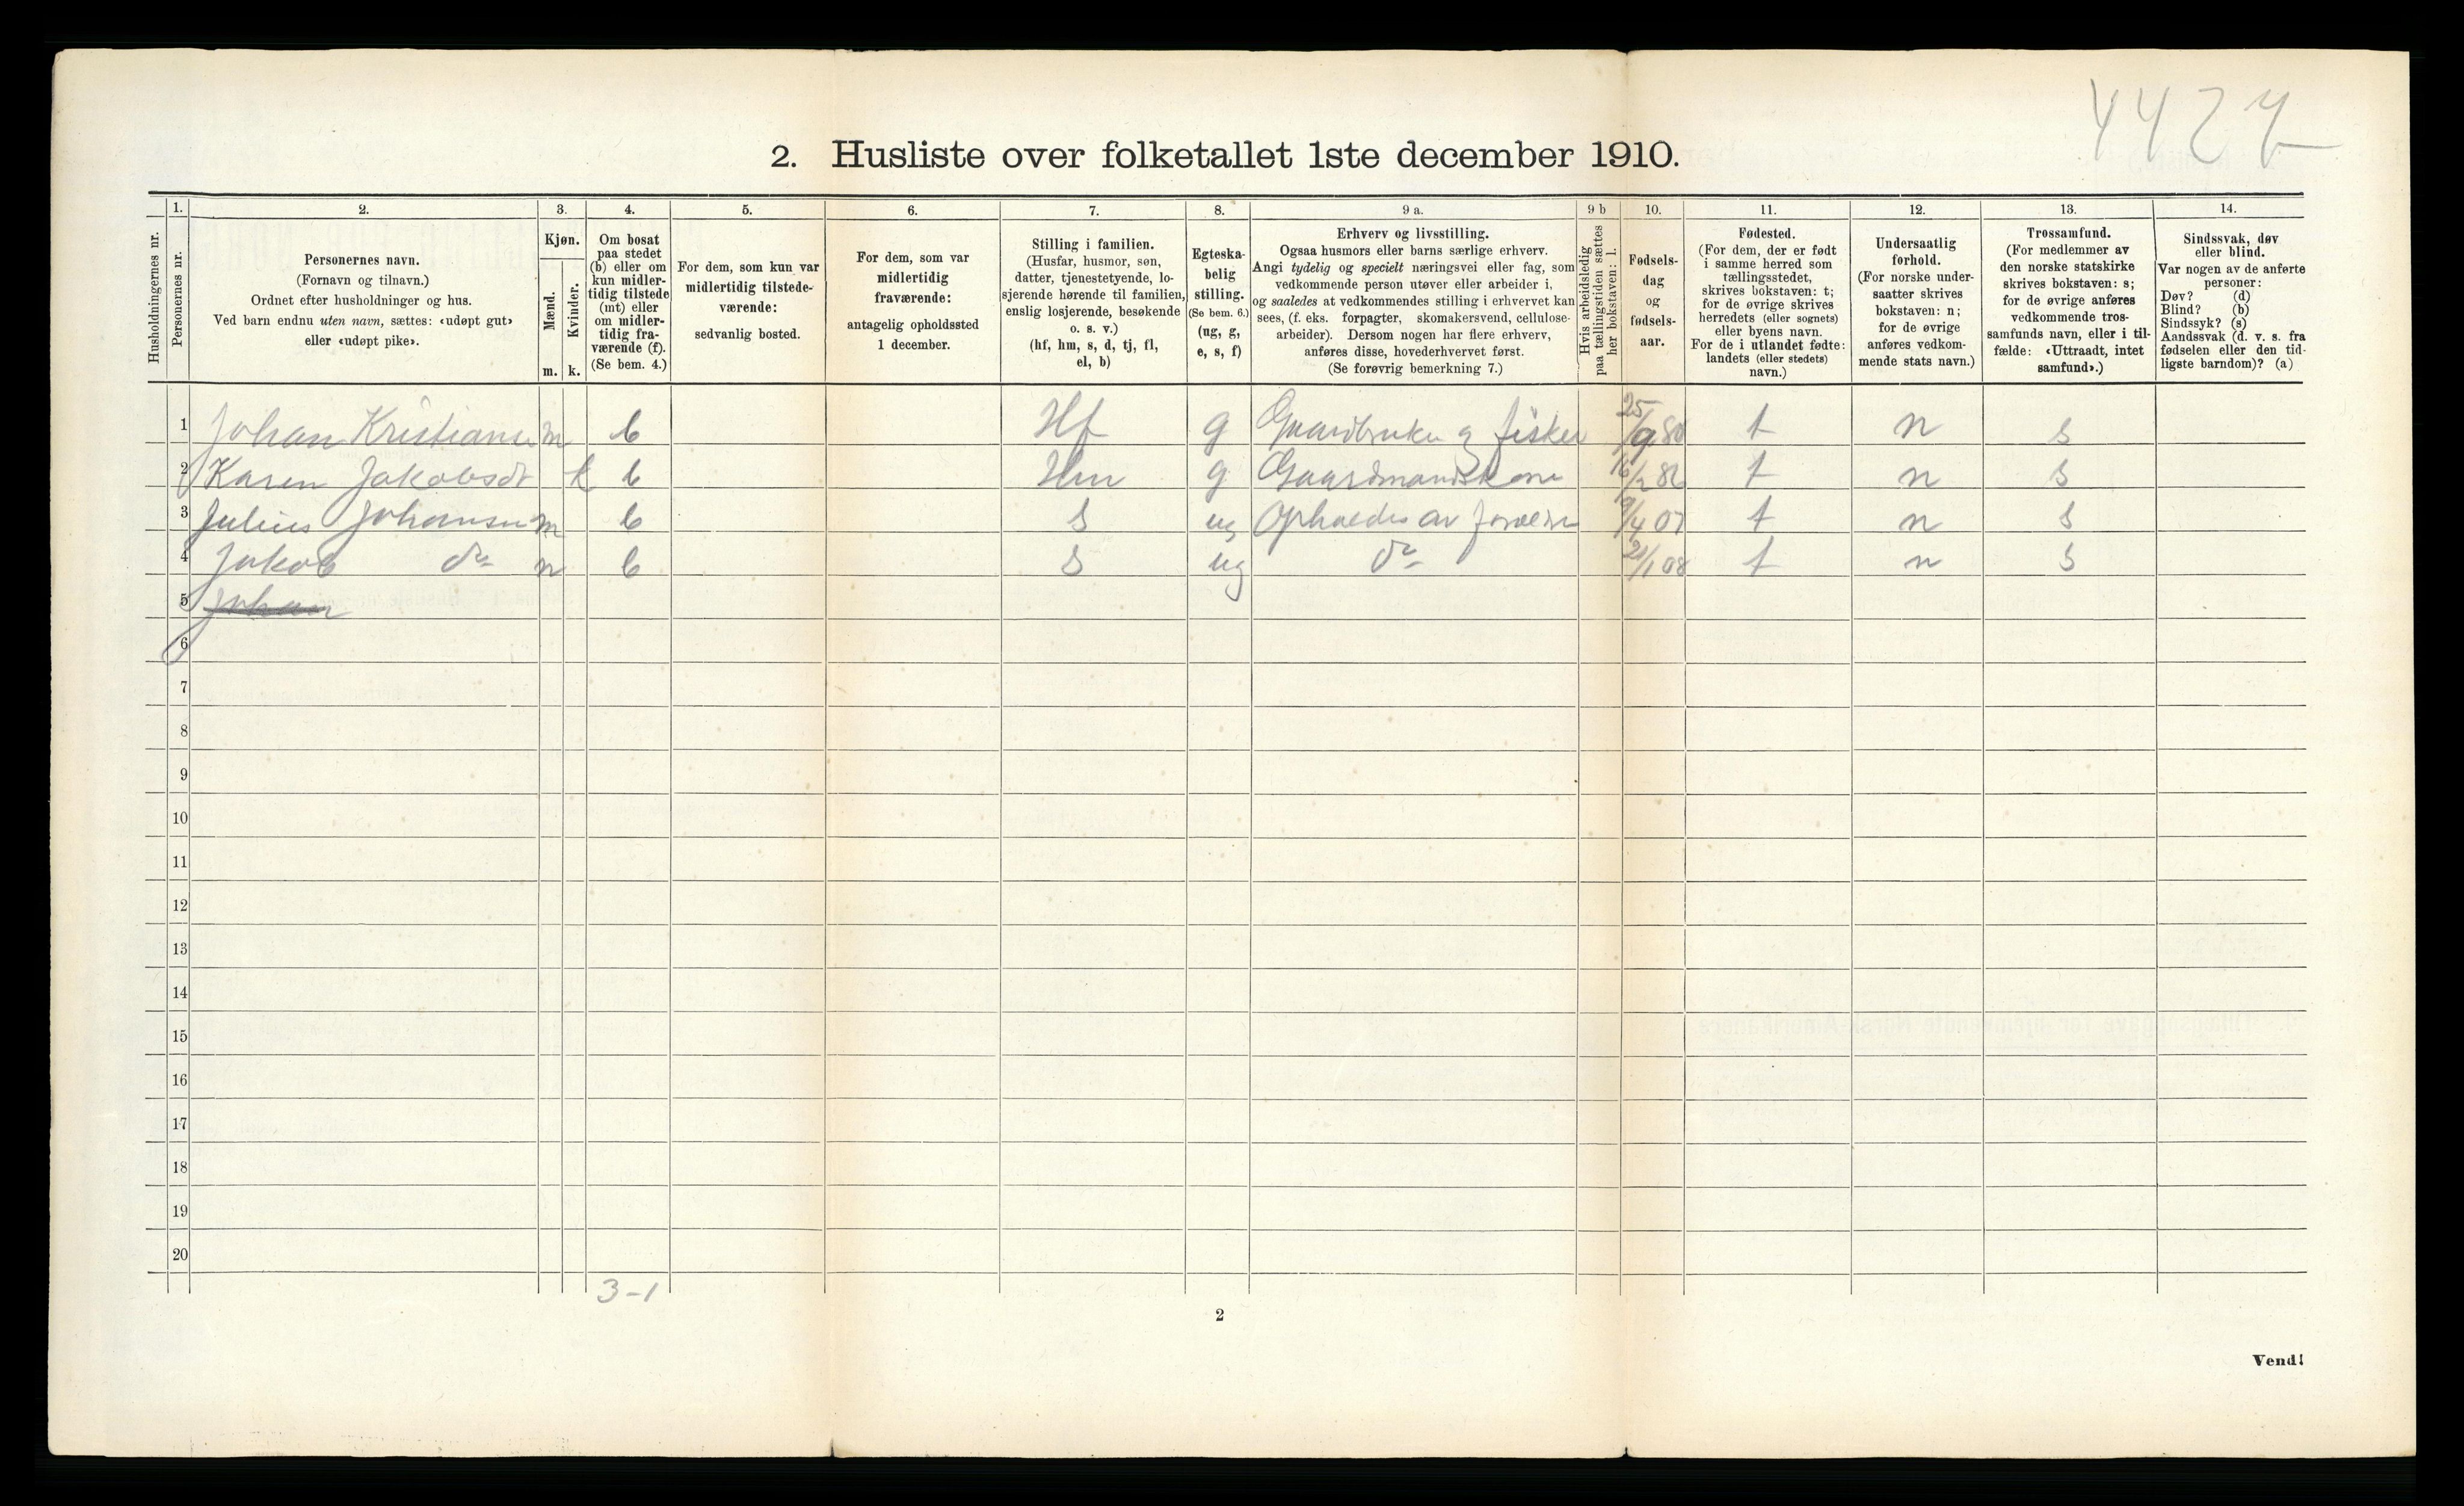 4427
2. Husliste over folketallet 1ste december 1910.
Husholdningernes nr.
1. 2. 3. 4. 5. 6. 7. 8. 9 a. 9 b 10. 11. 12. 13. 14.
Personernes nr.
Personernes navn.
(Fornavn og tilnavn.)
Ordnet efter husholdninger og hus.
Ved barn endnu uten navn, sættes: «udøpt gut»
eller «udøpt pike».
Kjøn.
Mænd.
Kvinder.
m. k.
Om bosat
paa stedet
(b) eller om
kun midler-
tidig tilstede
(mt) eller
om midler-
tidig fra-
værende (f).
(Se bem. 4.)
For dem, som kun var
midlertidig tilstede-
værende:
sedvanlig bosted.
For dem, som var
midlertidig
fraværende:
antagelig opholdssted
1 december.
Stilling i familien.
(Husfar, husmor, søn,
datter, tjenestetyende, lo-
sjerende hørende til familien,
enslig losjerende, besøkende
o. s. v.)
(hf, hm, s, d, tj, fl,
el, b)
Egteska-
belig
stilling.
(Se bem. 6.)
(ug, g,
e, s, f)
Erhverv og livsstilling.
Ogsaa husmors eller barns særlige erhverv.
Angi tydelig og specielt næringsvei eller fag, som
vedkommende person utøver eller arbeider i,
og saaledes at vedkommendes stilling i erhvervet kan
sees, (f. eks. forpagter, skomakersvend, cellulose-
arbeider). Dersom nogen har flere erhverv,
anføres disse, hovederhvervet først.
(Se forøvrig bemerkning 7.)
Hvis arbeidsledig
paa tællingstiden sættes
her bokstaven: l.
Fødsels-
dag
og
fødsels-
aar.
Fødested.
(For dem, der er født
i samme herred som
tællingsstedet,
skrives bokstaven: t;
for de øvrige skrives
herredets (eller sognets)
eller byens navn.
For de i utlandet fødte:
landets (eller stedets)
navn.)
Undersaatlig
forhold.
(For norske under-
saatter skrives
bokstaven: n;
for de øvrige
anføres vedkom-
mende stats navn.)
Trossamfund.
(For medlemmer av
den norske statskirke
skrives bokstaven: s;
for de øvrige anføres
vedkommende tros-
samfunds navn, eller i til-
fælde: «Uttraadt, intet
samfund».)
Sindssvak, døv
eller blind.
Var nogen av de anførte
personer:
Døv? (d)
Blind? (b)
Sindssyk? (s)
Aandssvak (d. v. s. fra
fødselen eller den tid-
ligste barndom)? (a)
1 Johan Kristianse m b Hf g Gaardbruker og fisker 25/9 80 t n s
2 Karen Jakobsdt k b Hm g Gaardmandskone 16/2 86 t n s
3 Julius Johansen m b s ug Opholdes av foreldre 9/4 07 t n s
4 Jakob do m b s ug do 21/1 08 t n s
5 Johan
6
7
8
9
10
11
12
13
14
15
16
17
18
19
20
3-1
2
Vend!